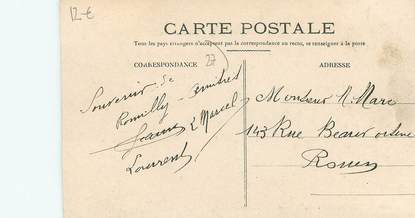 12-€
CARTE POSTALE
Tous les pays étrangers n'acceptent pas la correspondance au recto, se renseigner à la poste
CORRESPONDANCE
27
ADRESSE
Souvenir de
Romilly
Jeanne & Marcel
Laurent
Monsieur N. Marc
143 Rue Beauvoisine
Rouen